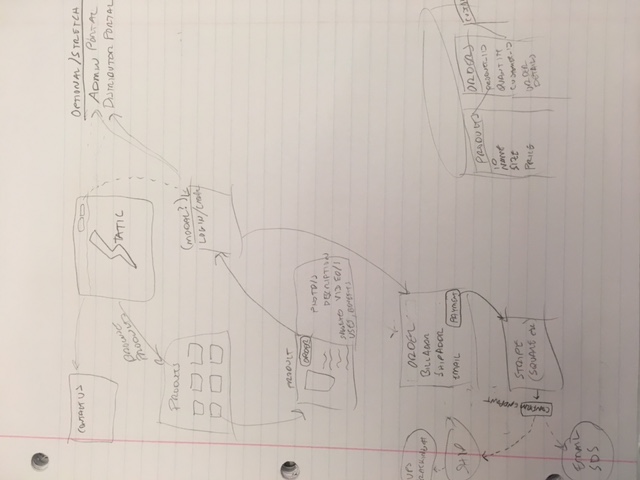 CONTACT US
STATIC
OPTIONAL/STRETCH
ADMIN PORTAL
DISTRIBUTOR PORTAL
BROWSE
PRODUCTS
PRODUCTS
(MODAL?)
LOGIN/
PRODUCT
ORDER
PHOTO/S
DESCRIPTION
VIDEO/S
USES,
ORDER
BILLADDR
SHIPADDR
EMAIL
PAYMENT
UPS
TRACKING
SHIP
STRIPE
(SQUARE ETC)
EMAIL
SDS
PRODUCTS
ID
NAME
SIZE
PRICE
ORDERS
PRODUCT-ID
QUANTITY
CUSTOMER-ID
ORDER
DETAILS